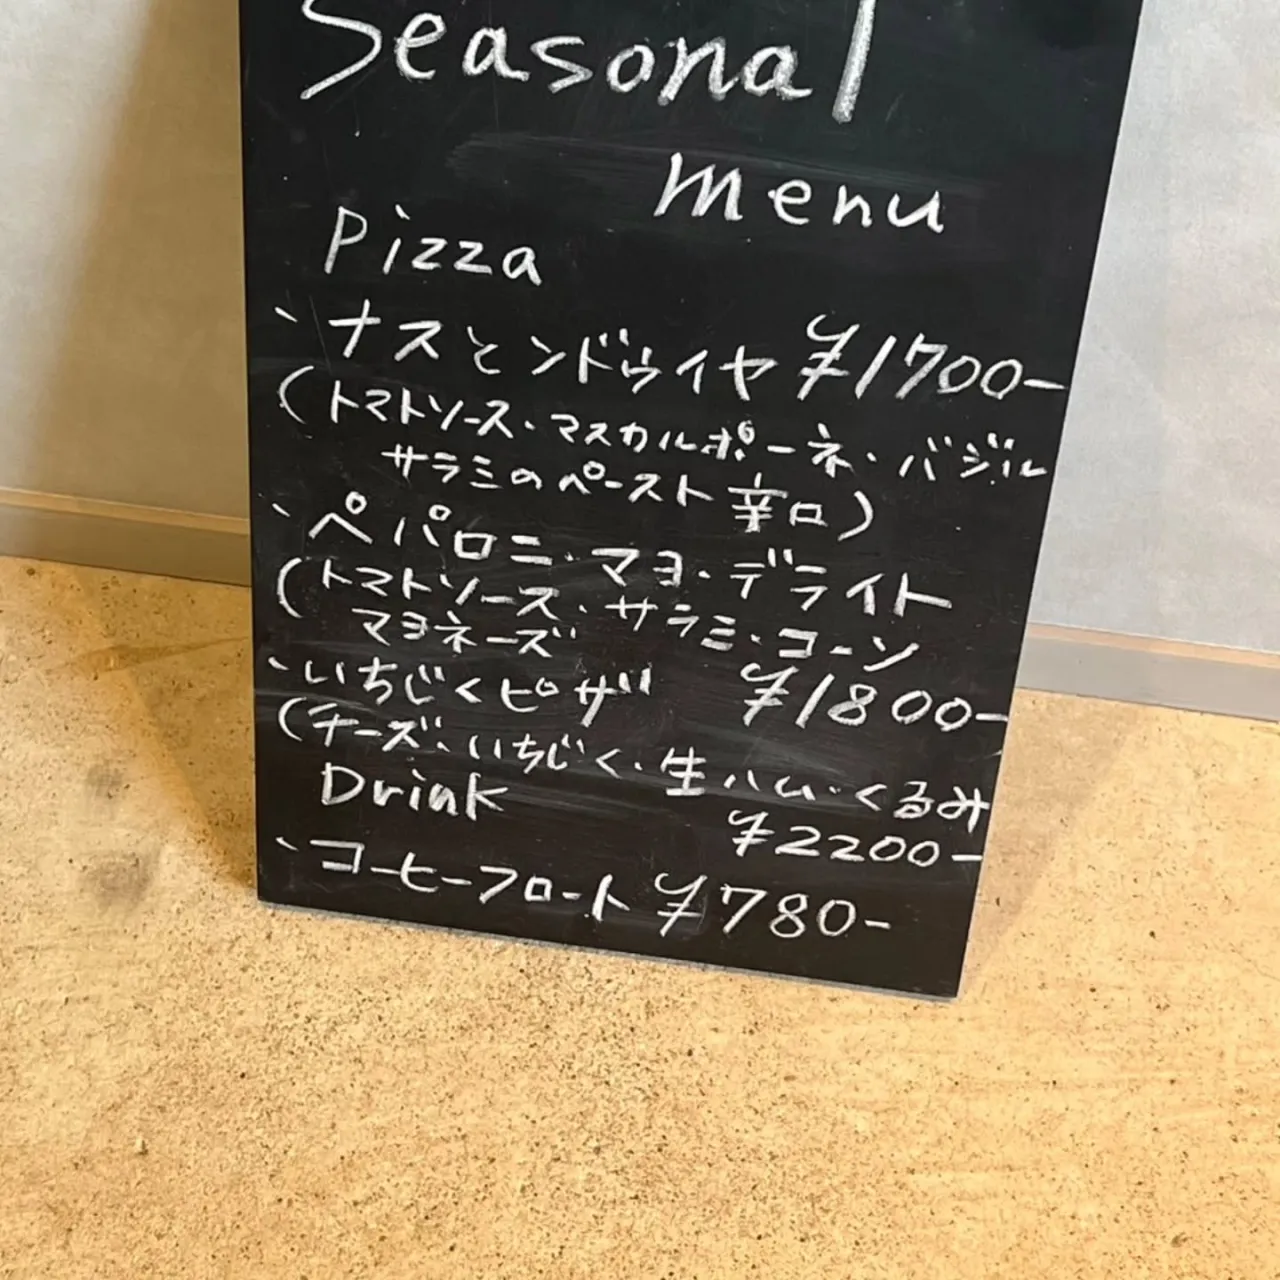 Seasonal
menu
Pizza
、ナスとンドゥイヤ ¥1700-
(トマトソース・マスカルポーネ・バジル
サラミのペースト 辛口)
、ペパロニ・マヨ・デライト
(トマトソース・サラミ・コーン
マヨネーズ
¥1800-
、いちじくピザ
(チーズ、いちじく・生ハム・くるみ
¥2200-
Drink
、コーヒーフロート ¥780-